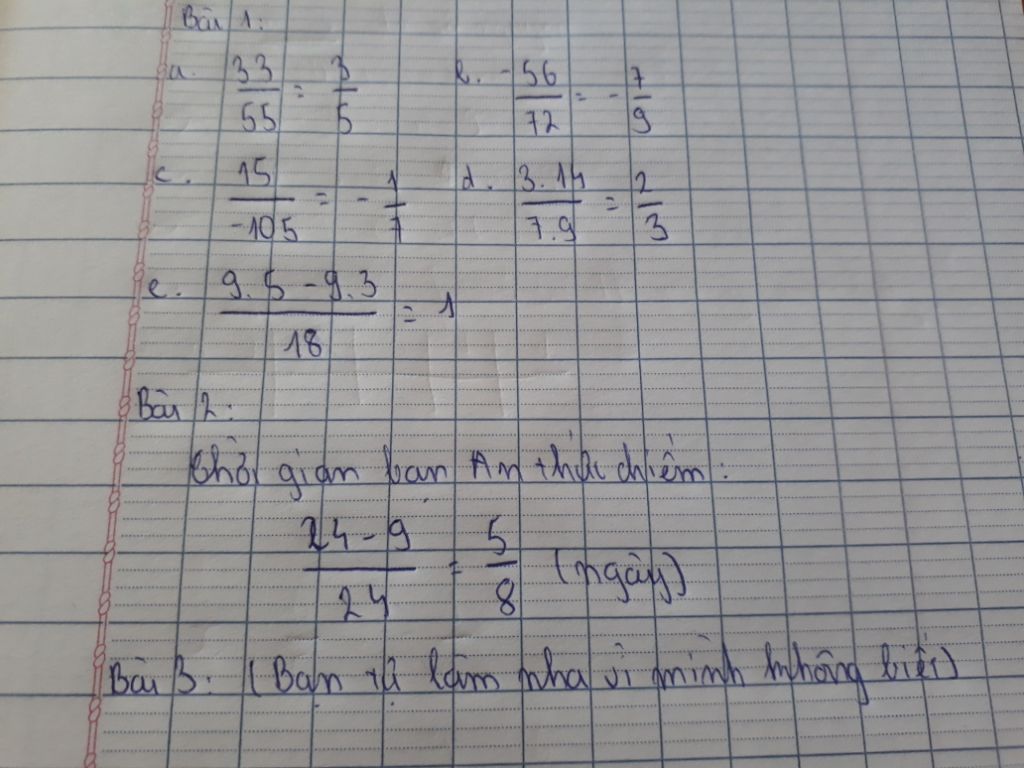 Bài 1:
a. 33/55 = 3/5 b. -56/72 = -7/9
c. 15/-105 = -1/7 d. 3.14/7.9 = 2/3
e. 9.5 - 9.3/18 = 1
Bài 2:
Thời gian bạn An thức chiếm:
24 - 9/24 = 5/8 (ngày)
Bài 3: (Bạn tự làm nha vì mình không biết)